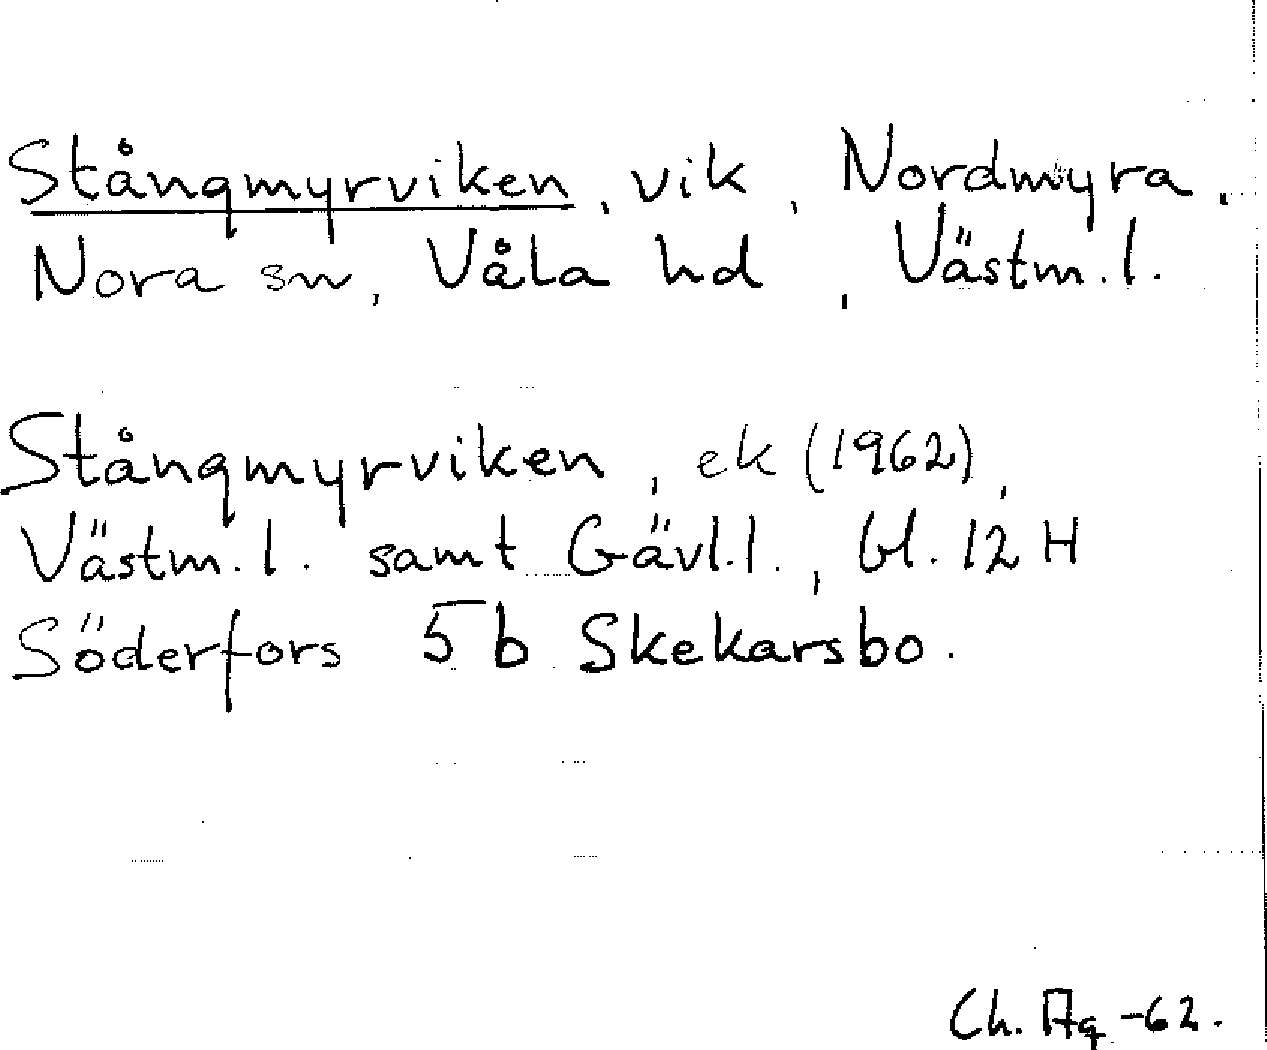 Stångmyrviken, vik, Nordmyra,
Nora sn, Våla hd, Västm. l.
Stångmyrviken, ek (1962),
Västm. l. samt Gävl. l., bl. 12 H
Söderfors 5 b Skekarsbo.
Ch. Ag -62.